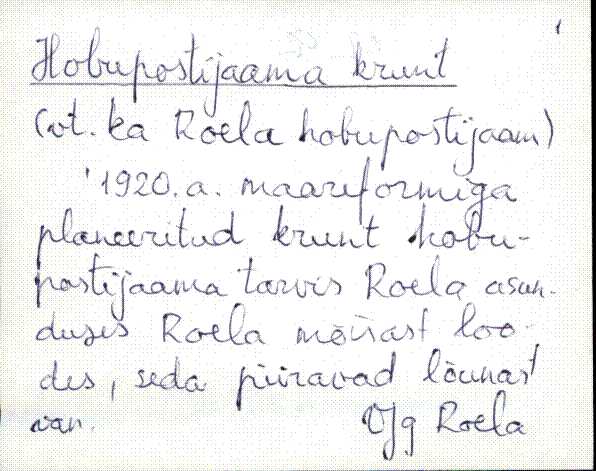 1
Hobupostijaama krunt
(vt. ka Roela hobupostijaam)
1920.a. maareformiga
planeeritud krunt hobu-
postijaama tarvis Roela asun-
duses Roela mõisast loo-
des, seda piiravad lõunast
van. VJg Roela